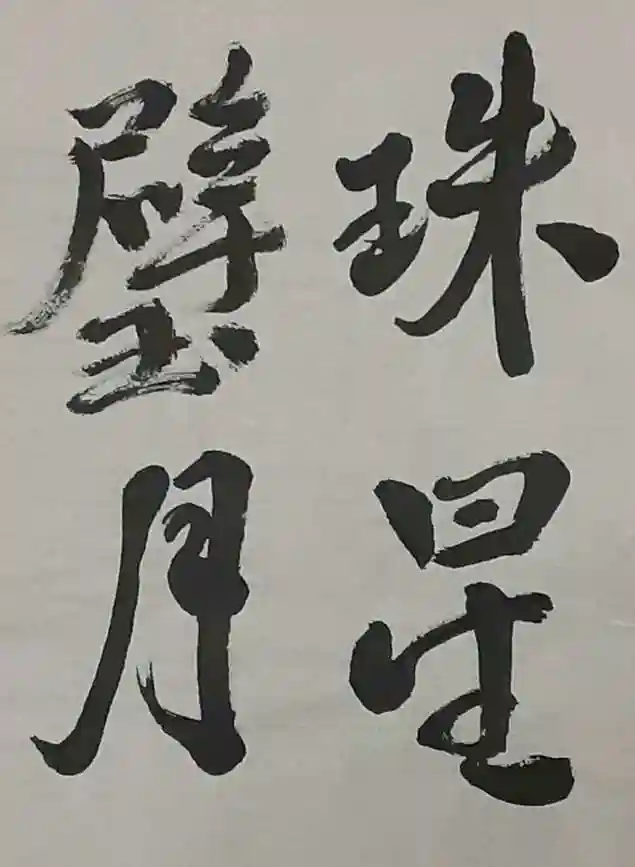 珠星
璧月